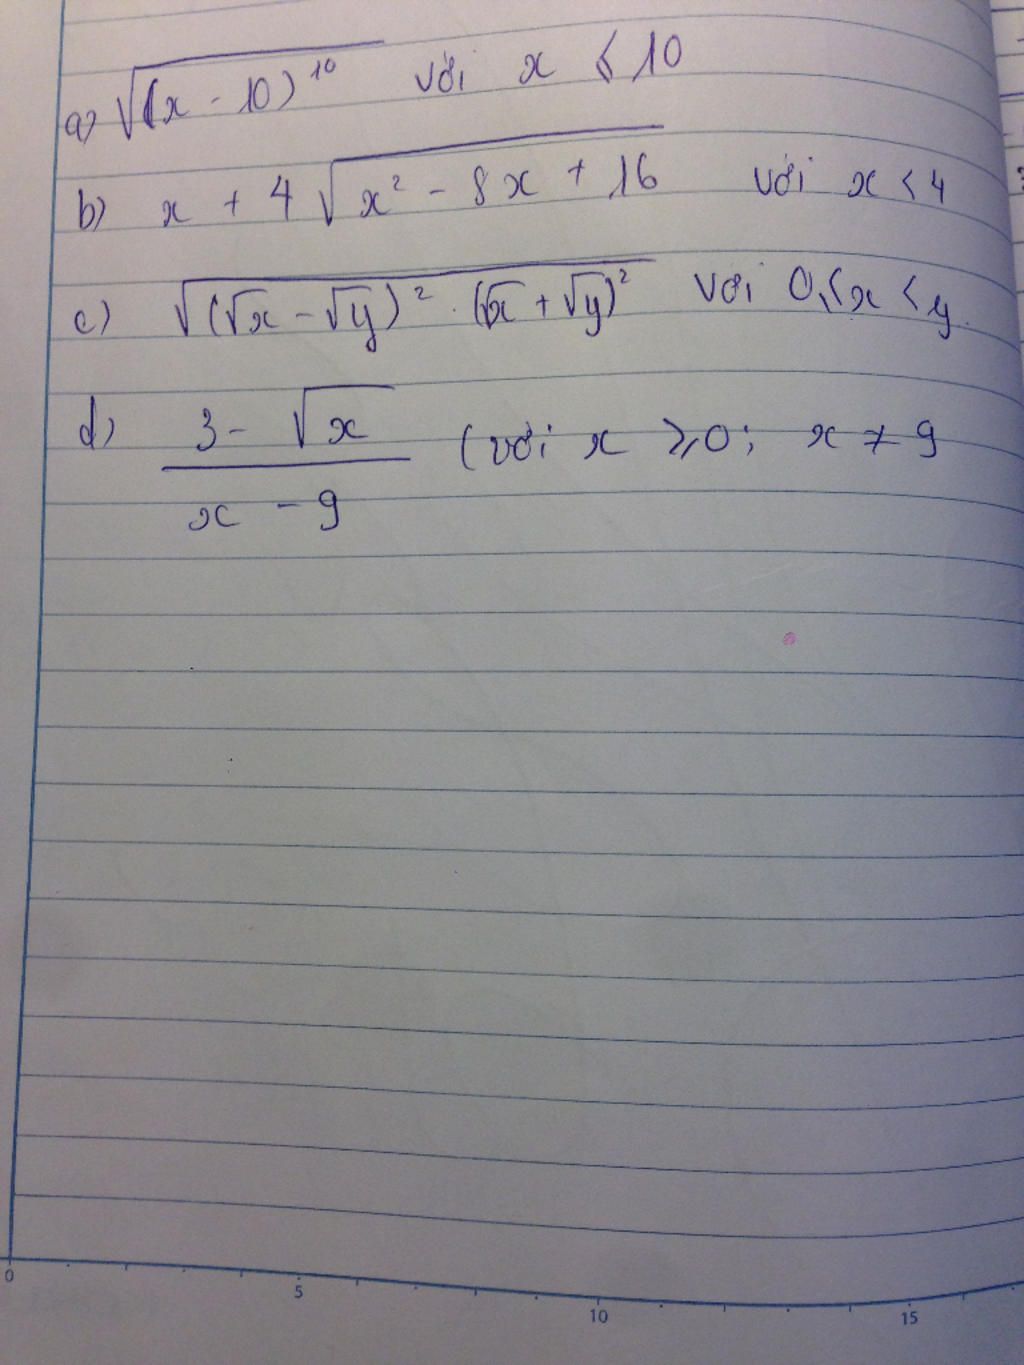 a) √(x - 10)¹⁰ với x ≤ 10
b) x + 4 √x² - 8x + 16 với x < 4
c) √(√x - √y)² . (√x + √y)² với 0 ≤ x < y.
d) 3 - √x / x - 9 (với x ≥ 0; x ≠ 9
0 5 10 15